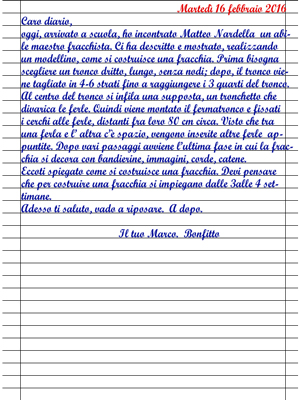 Martedì 16 febbraio 2016
Caro diario,
oggi, arrivato a scuola, ho incontrato Matteo Nardella un abi-
le maestro fracchista. Ci ha descritto e mostrato, realizzando
un modellino, come si costruisce una fracchia. Prima bisogna
scegliere un tronco dritto, lungo, senza nodi; dopo, il tronco vie-
ne tagliato in 4-6 strati fino a raggiungere i 3 quarti del tronco.
Al centro del tronco si infila una supposta, un tronchetto che
divarica le ferle. Quindi viene montato il fermatronco e fissati
i cerchi alle ferle, distanti fra loro 80 cm circa. Visto che tra
una ferla e l' altra c'è spazio, vengono inserite altre ferle ap-
puntite. Dopo vari passaggi avviene l'ultima fase in cui la frac-
chia si decora con bandierine, immagini, corde, catene.
Eccoti spiegato come si costruisce una fracchia. Devi pensare
che per costruire una fracchia si impiegano dalle 3alle 4 set-
timane.
Adesso ti saluto, vado a riposare. A dopo.
Il tuo Marco. Bonfitto